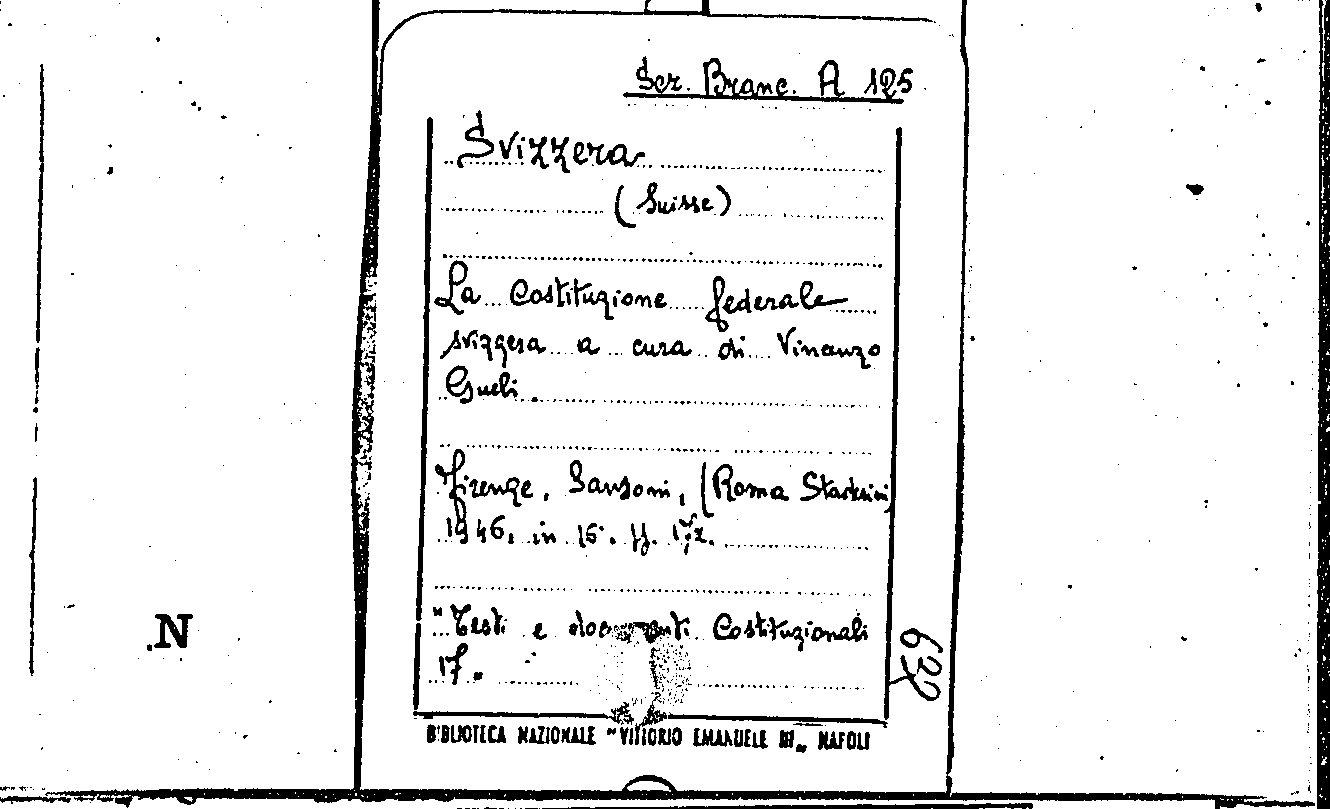 Scr. Branc. A 125
Svizzera
(Suisse)
La Costituzione federale
svizzera a cura di Vincenzo
Gueli.
Firenze, Sansoni, (Roma Staderini)
1946. in 16°. pp. 172.
"Testi e documenti Costituzionali
17"
N
BIBLIOTECA NAZIONALE "VITTORIO EMANUELE III" NAPOLI